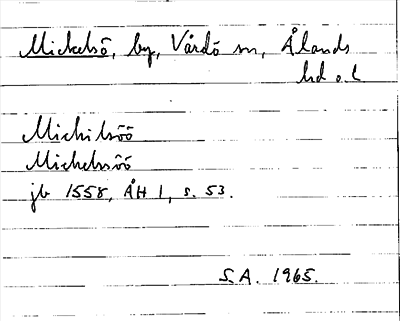 Mickelsö, by, Vårdö sn, Ålands
hd o. l
Michilsöö
Michelsöö
jb 1558, ÅH 1, s. 53.
S.A. 1965.